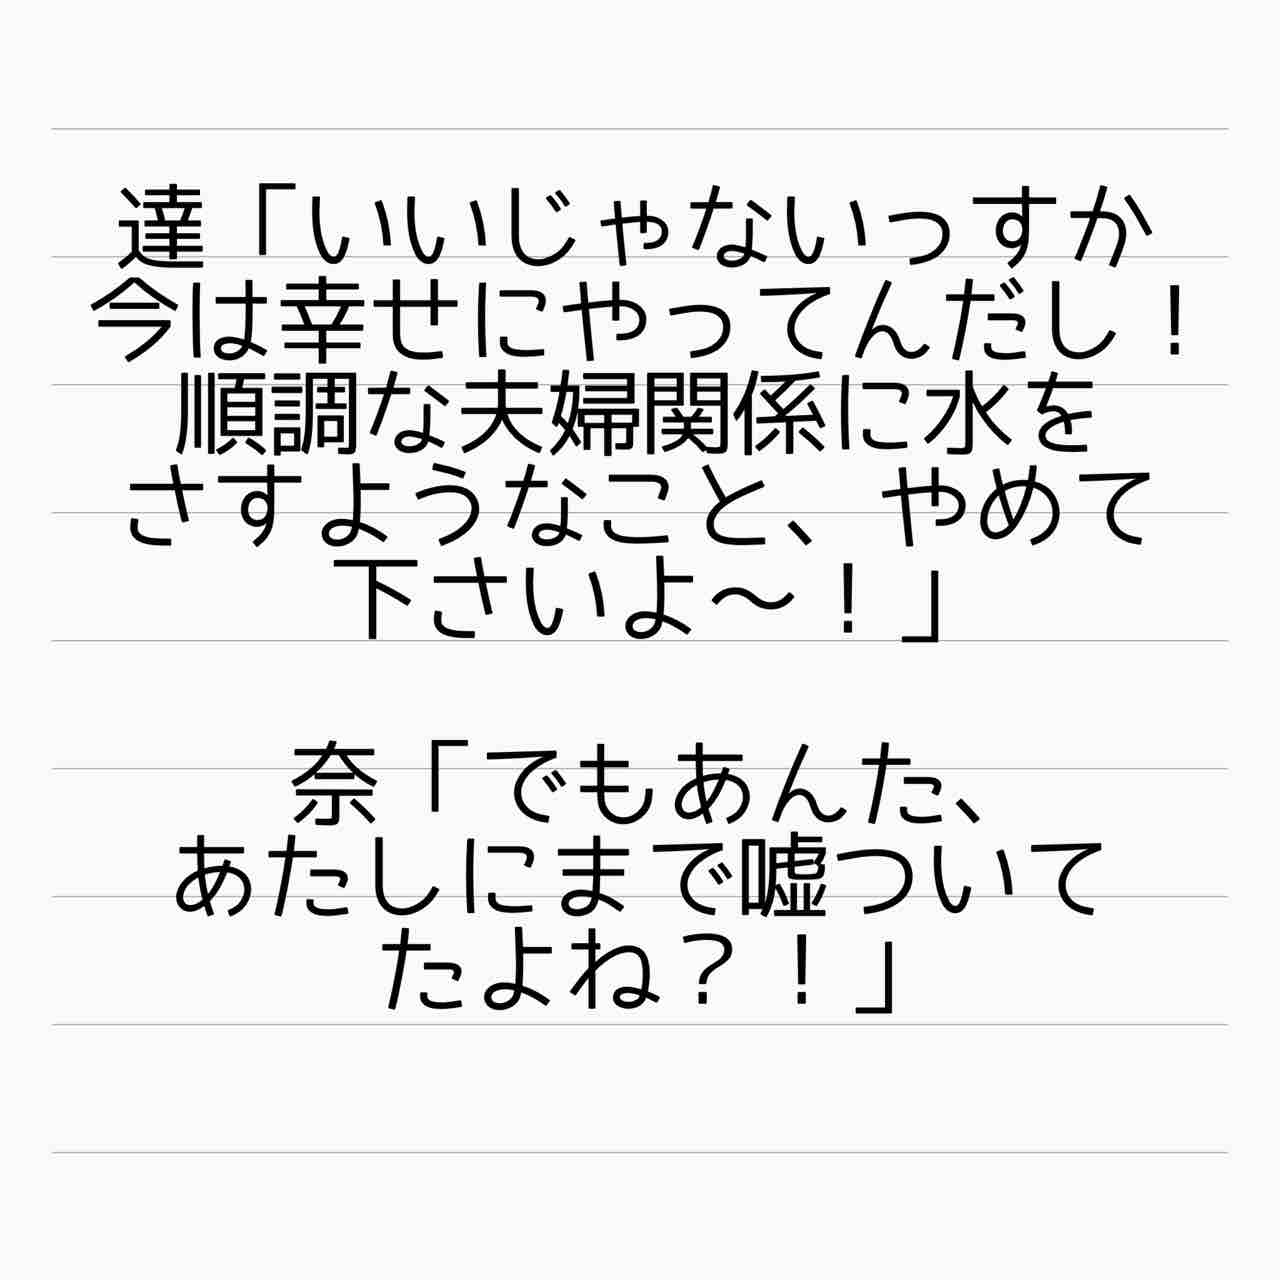 達「いいじゃないっすか
今は幸せにやってんだし！
順調な夫婦関係に水を
さすようなこと、やめて
下さいよ〜！」
奈「でもあんた、
あたしにまで嘘ついて
たよね？！」